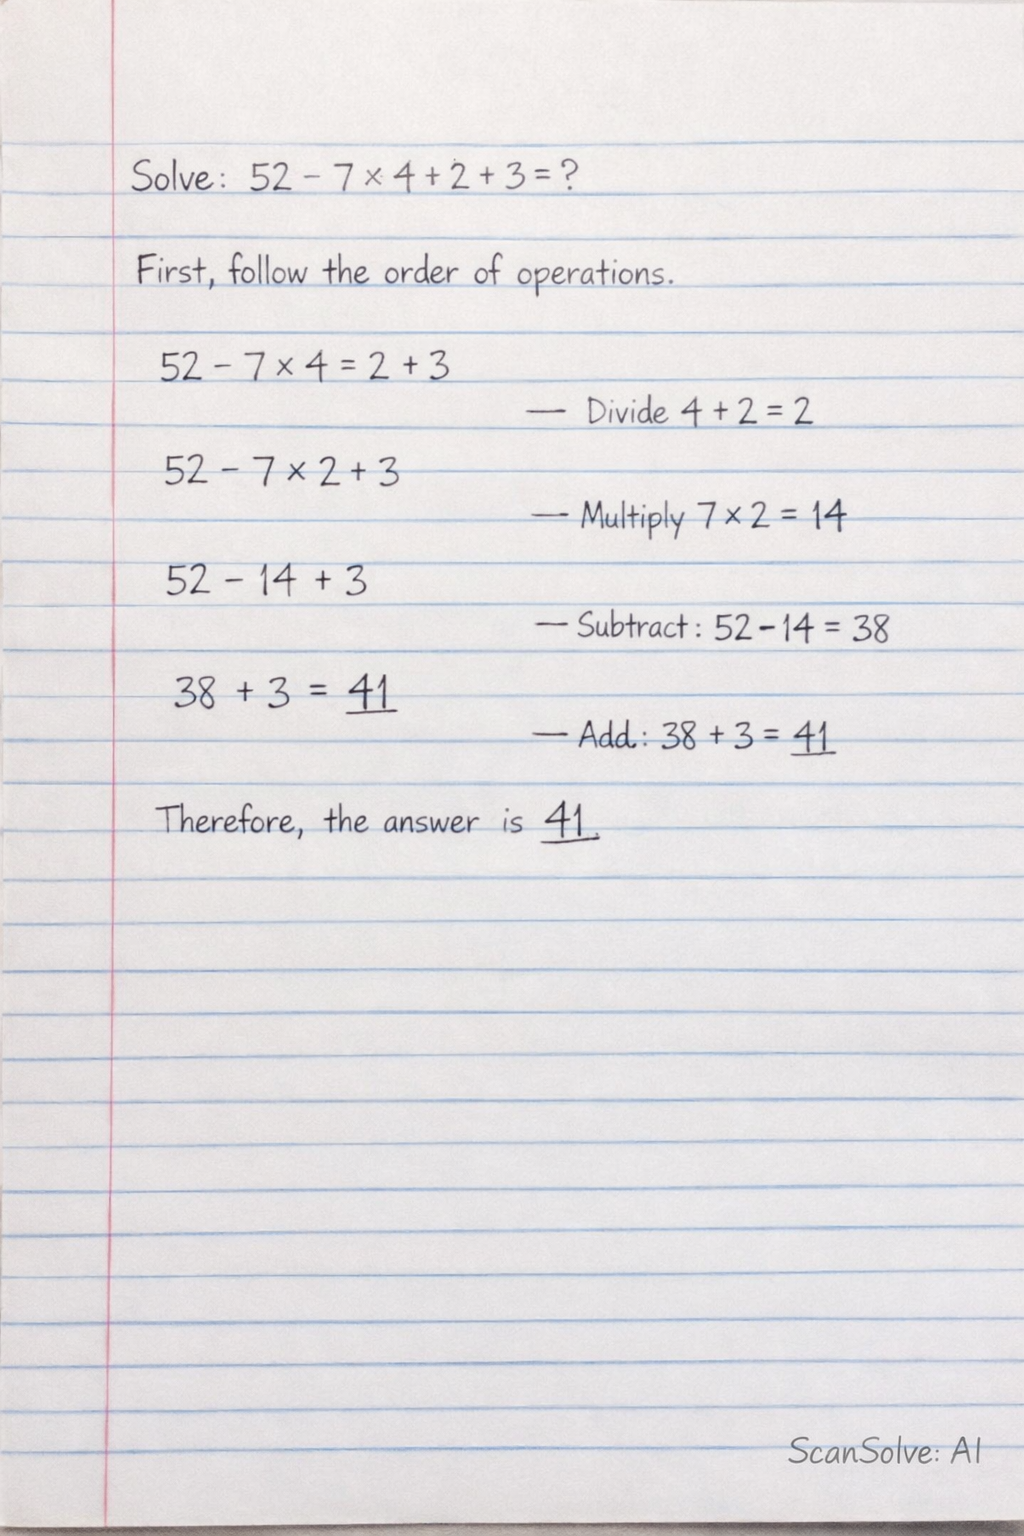 Solve: 52 - 7 × 4 + 2 + 3 = ?
First, follow the order of operations.
52 - 7 × 4 = 2 + 3
— Divide 4 + 2 = 2
52 - 7 × 2 + 3
— Multiply 7 × 2 = 14
52 - 14 + 3
— Subtract: 52 - 14 = 38
38 + 3 = 41
— Add: 38 + 3 = 41
Therefore, the answer is 41.
ScanSolve: AI